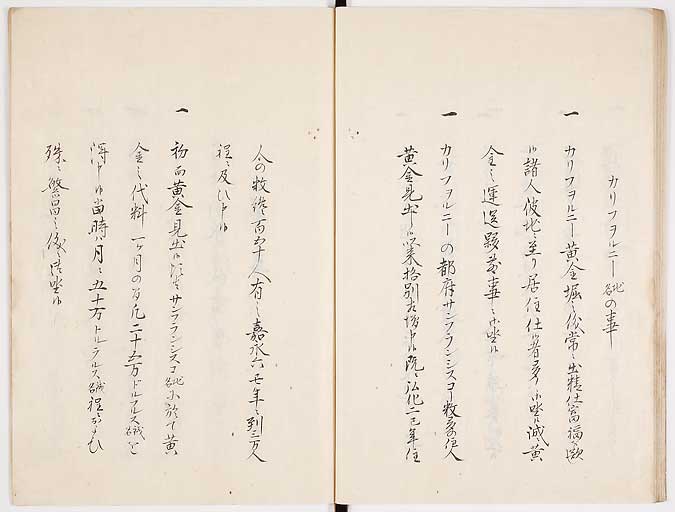 カリフヲルニー 地名 の事
一 カリフヲルニー黄金堀之儀常ニ出精仕富福
諸人彼地ニ至り居住仕候者多ク御坐候誠ニ黄
金之運送夥敷事ニ御坐候
一 カリフヲルニーの都府サンフランシスコー数多住人
黄金見出し以来格別相増申候既ニ弘化二巳年住
人の数纔百五十人有之嘉永六七年ニ到三万人
程ニ及び申候
一 初而黄金見出候サンフランシスコ 地名 ニ於て黄
金之代料一ヶ月の分凡二十五万ドルラルス 銀 を
得申候当時ハ月ニ五十万ドルラルス 銀 程
殊ニ繁昌之儀ニ御坐候